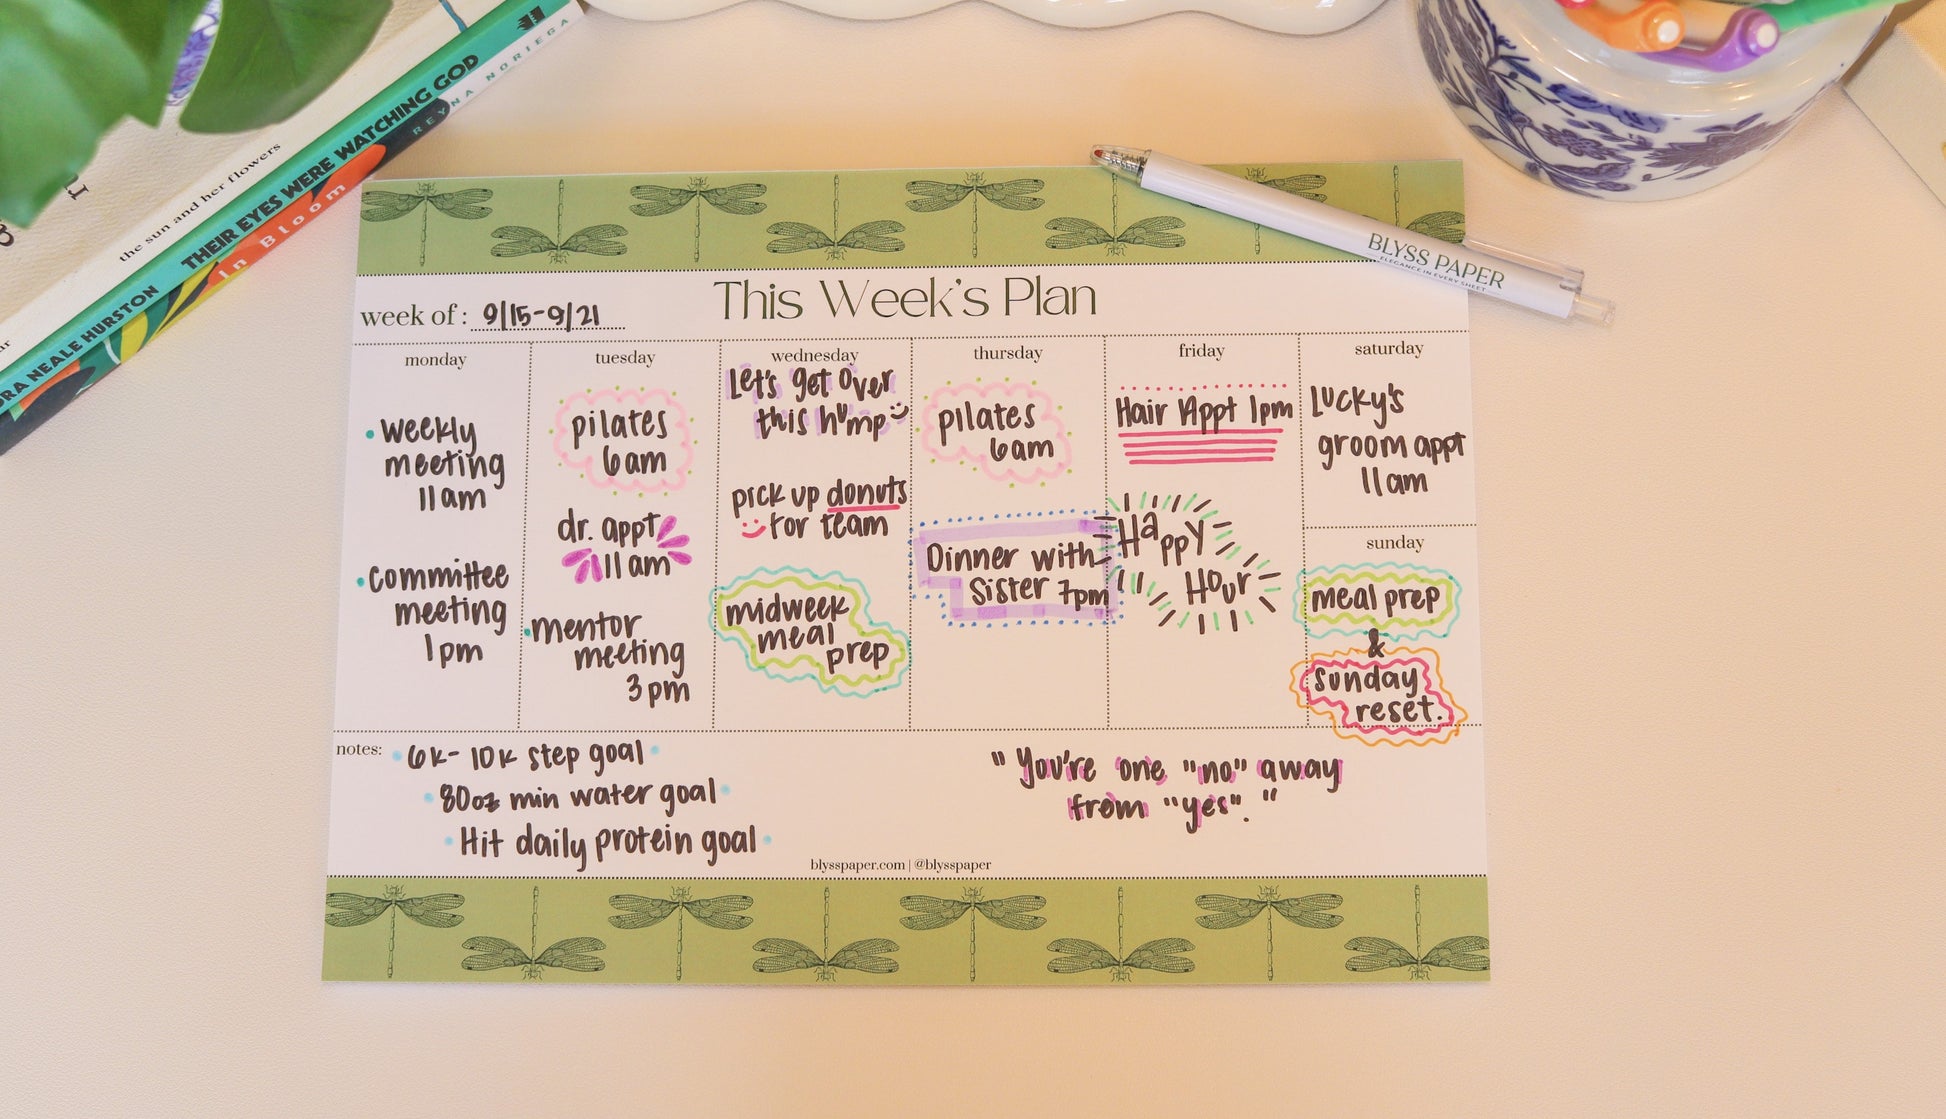 the sun and her flowers
THEIR EYES WERE WATCHING GOD
NEALE HURSTON
In Bloom
REYNA NORIEGA
BLYSS PAPER
ELEGANCE IN EVERY SHEET
This Week's Plan
week of: 9/15-9/21
monday
• weekly
meeting
11am
• committee
meeting
1pm
tuesday
pilates
6am
dr. appt
11am
• mentor
meeting
3pm
wednesday
Let's get over
this hump
pick up donuts
for team
midweek
meal
prep
thursday
pilates
6am
Dinner with
Sister 7pm
friday
Hair Appt 1pm
Happy
Hour
saturday
Lucky's
groom appt
11am
sunday
meal prep
&
sunday
reset.
notes:
• 6k-10k step goal •
• 80oz min water goal •
• Hit daily protein goal •
"You're one "no" away
from "yes"."
blysspaper.com | @blysspaper